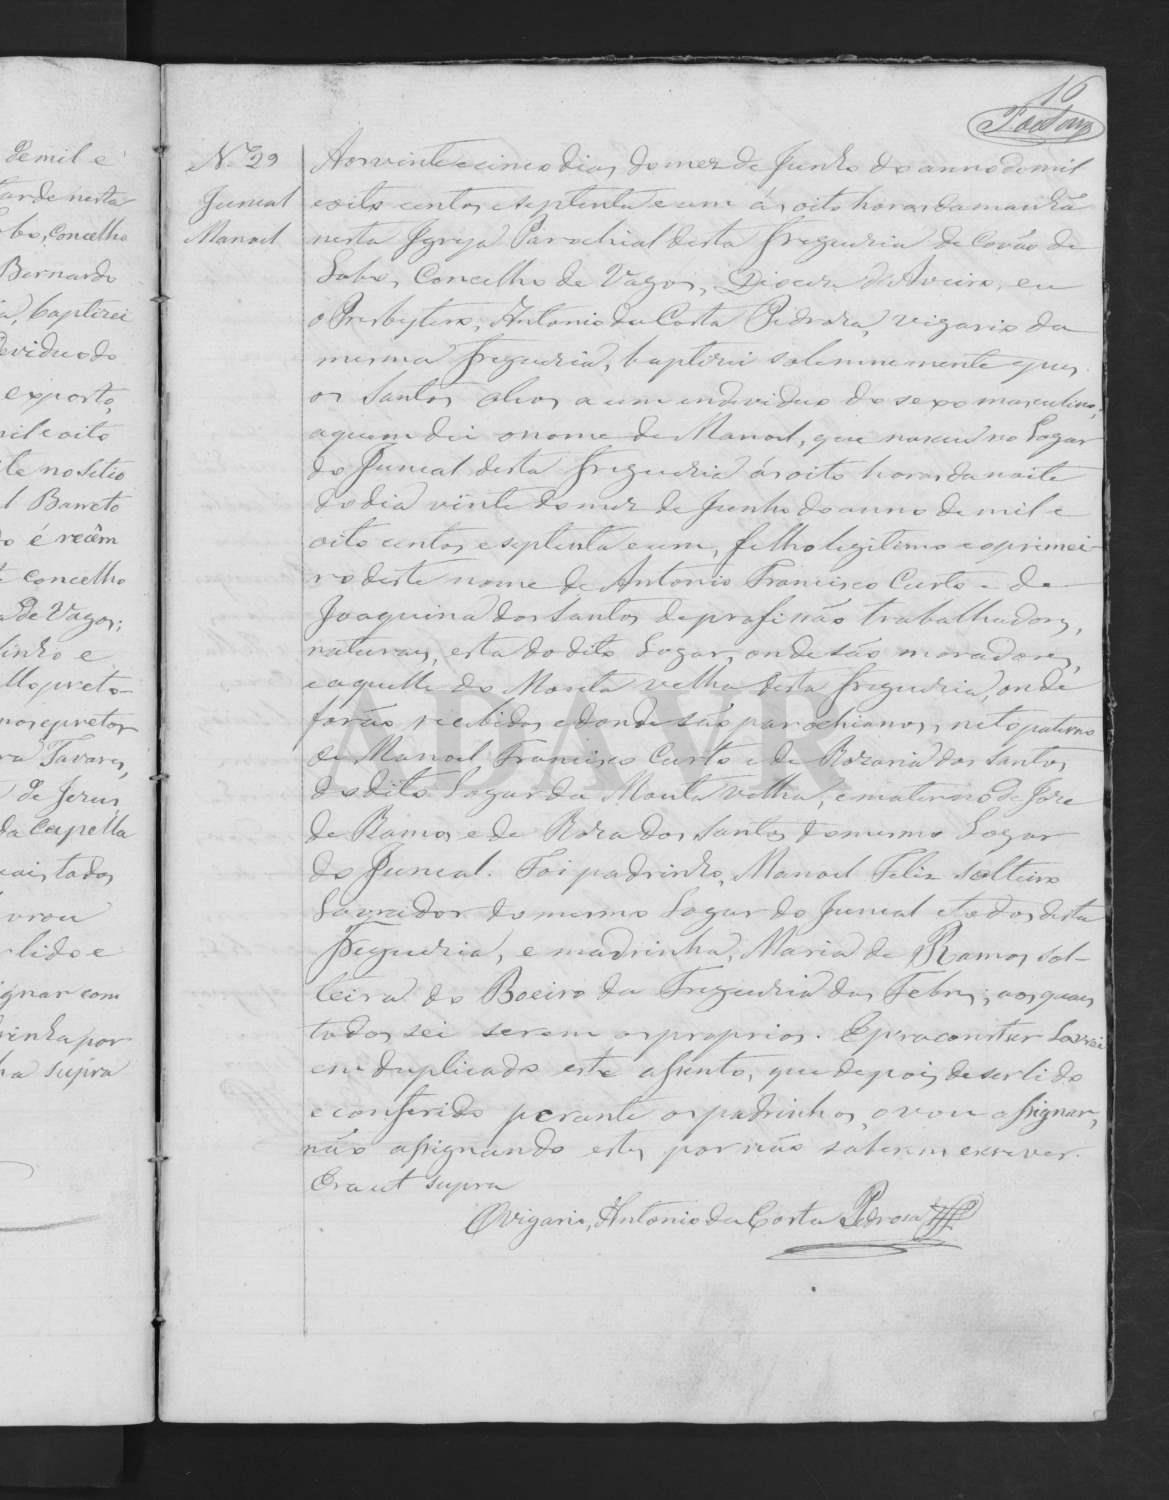 16
de mil e
tarde nesta
bo, Concelho
Bernardo
baptizei
dividuo do
exposto,
mil e oito
te no sitio
l Barreto
do é recêm
Concelho
de Vagos;
dinho e
Tavares,
de Jesus
da Capella
todos
vrou
lido e
gnar com
rinha por
ha supra
Nº 29
Juncal
Manoel
Aos vinte e cinco dias do mez de Junho do anno de mil
e oito centos e septenta e um ás oito horas da manhã
nesta Igreja Parochial desta freguezia de Covão do
Lobo, Concelho de Vagos, Diocese d'Aveiro, eu
o Presbytero, Antonio da Costa Pedroza, vigario da
mesma freguezia, baptizei solemnemente e puz
os Santos oleos a um individuo do sexo masculino,
a quem dei o nome de Manoel, que nasceu no Logar
do Juncal desta freguezia ás oito horas da noite
do dia vinte do mez de Junho do anno de mil e
oito centos e septenta e um, filho legitimo e o primei-
ro deste nome de Antonio Francisco Curto e de
Joaquina dos Santos de profissão trabalhadores,
naturaes, esta do dito Logar, onde são moradores,
e aquelle do Monta velha desta freguezia, onde
forão recebidos e donde são parochianos, neto paterno
de Manoel Francisco Curto e de Rozaria dos Santos
do dito Logar da Monta velha, e materno de Joze
de Ramos e de Roza dos Santos do mesmo Logar
do Juncal. Foi padrinho, Manoel Feliz solteiro
Lavrador do mesmo Logar do Juncal e todos desta
Freguezia, e madrinha, Maria de Ramos sol-
teira do Boeiro da Freguezia das Febres; aos quaes
todos sei serem os proprios. E para constar Lavrei
em duplicado este assento, que depois de ser lido
e conferido perante os padrinhos, o vou assignar,
não assignando estes por não saberem escrever.
Era ut supra
O Vigario, Antonio da Costa Pedroza
ADAVR